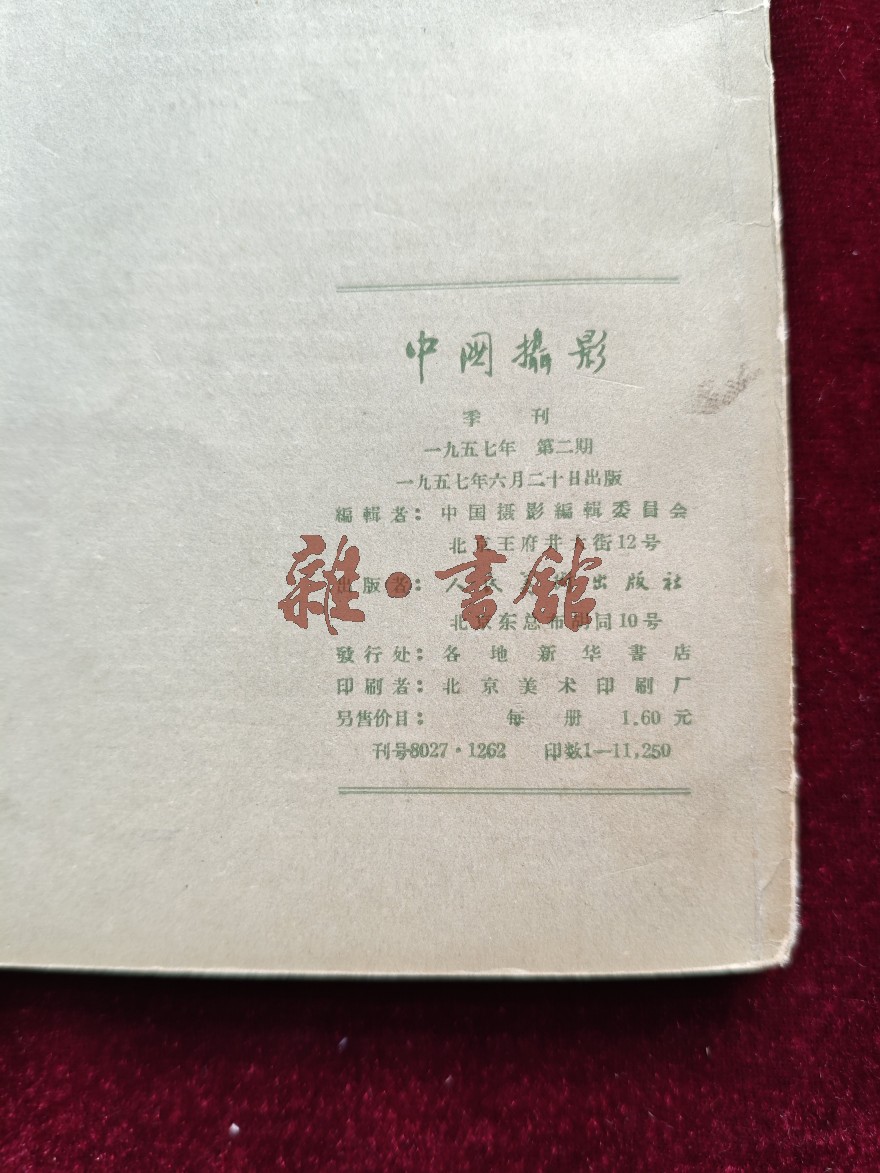 中国攝影
季 刊
一九五七年 第二期
一九五七年六月二十日出版
編輯者：中国摄影編輯委員会
北京王府井大街12号
出版者：人民美術出版社
北京东总布胡同10号
發行处：各地新华書店
印刷者：北京美术印刷厂
另售价目： 每 册 1.60 元
刊号8027·1262 印数1—11,250
雜·書館